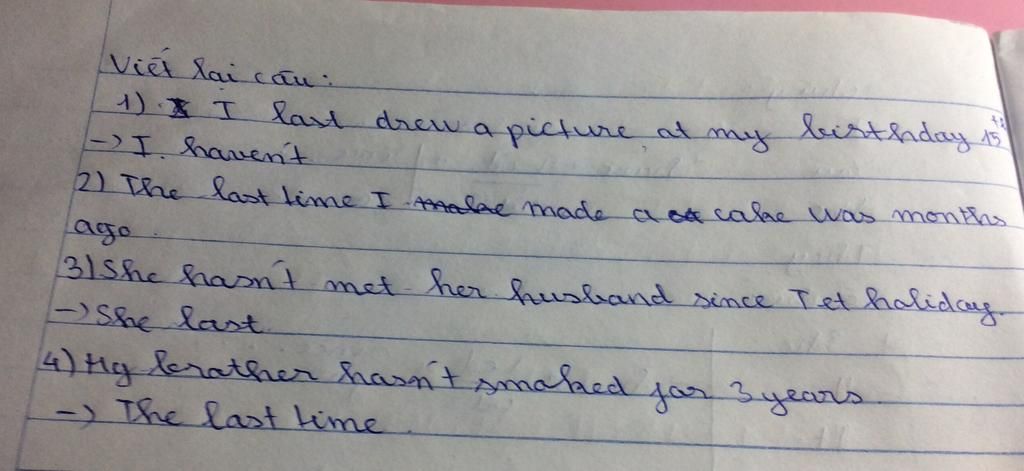 Viết lại câu:
1) I last drew a picture at my birthday 15th
-> I haven't
2) The last time I make made a cake was months
ago.
3) She hasn't met her husband since Tet holiday.
-> She last
4) My brother hasn't smoked for 3 years.
-> The last time